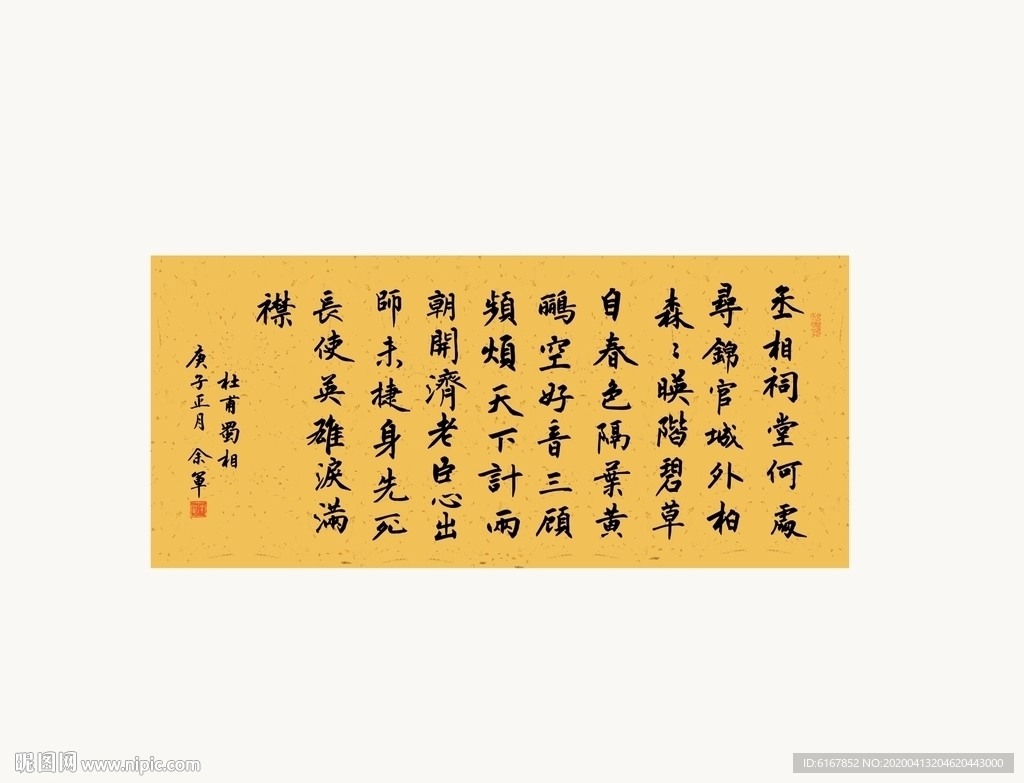 丞相祠堂何處
尋錦官城外柏
森〻暎階碧草
自春色隔葉黄
鸝空好音三顧
頻煩天下計兩
朝開濟老臣心出
師未捷身先死
長使英雄淚滿
襟
杜甫蜀相
庚子正月 余軍
昵图网 www.nipic.com
ID:6167852 NO:20200413204620443000